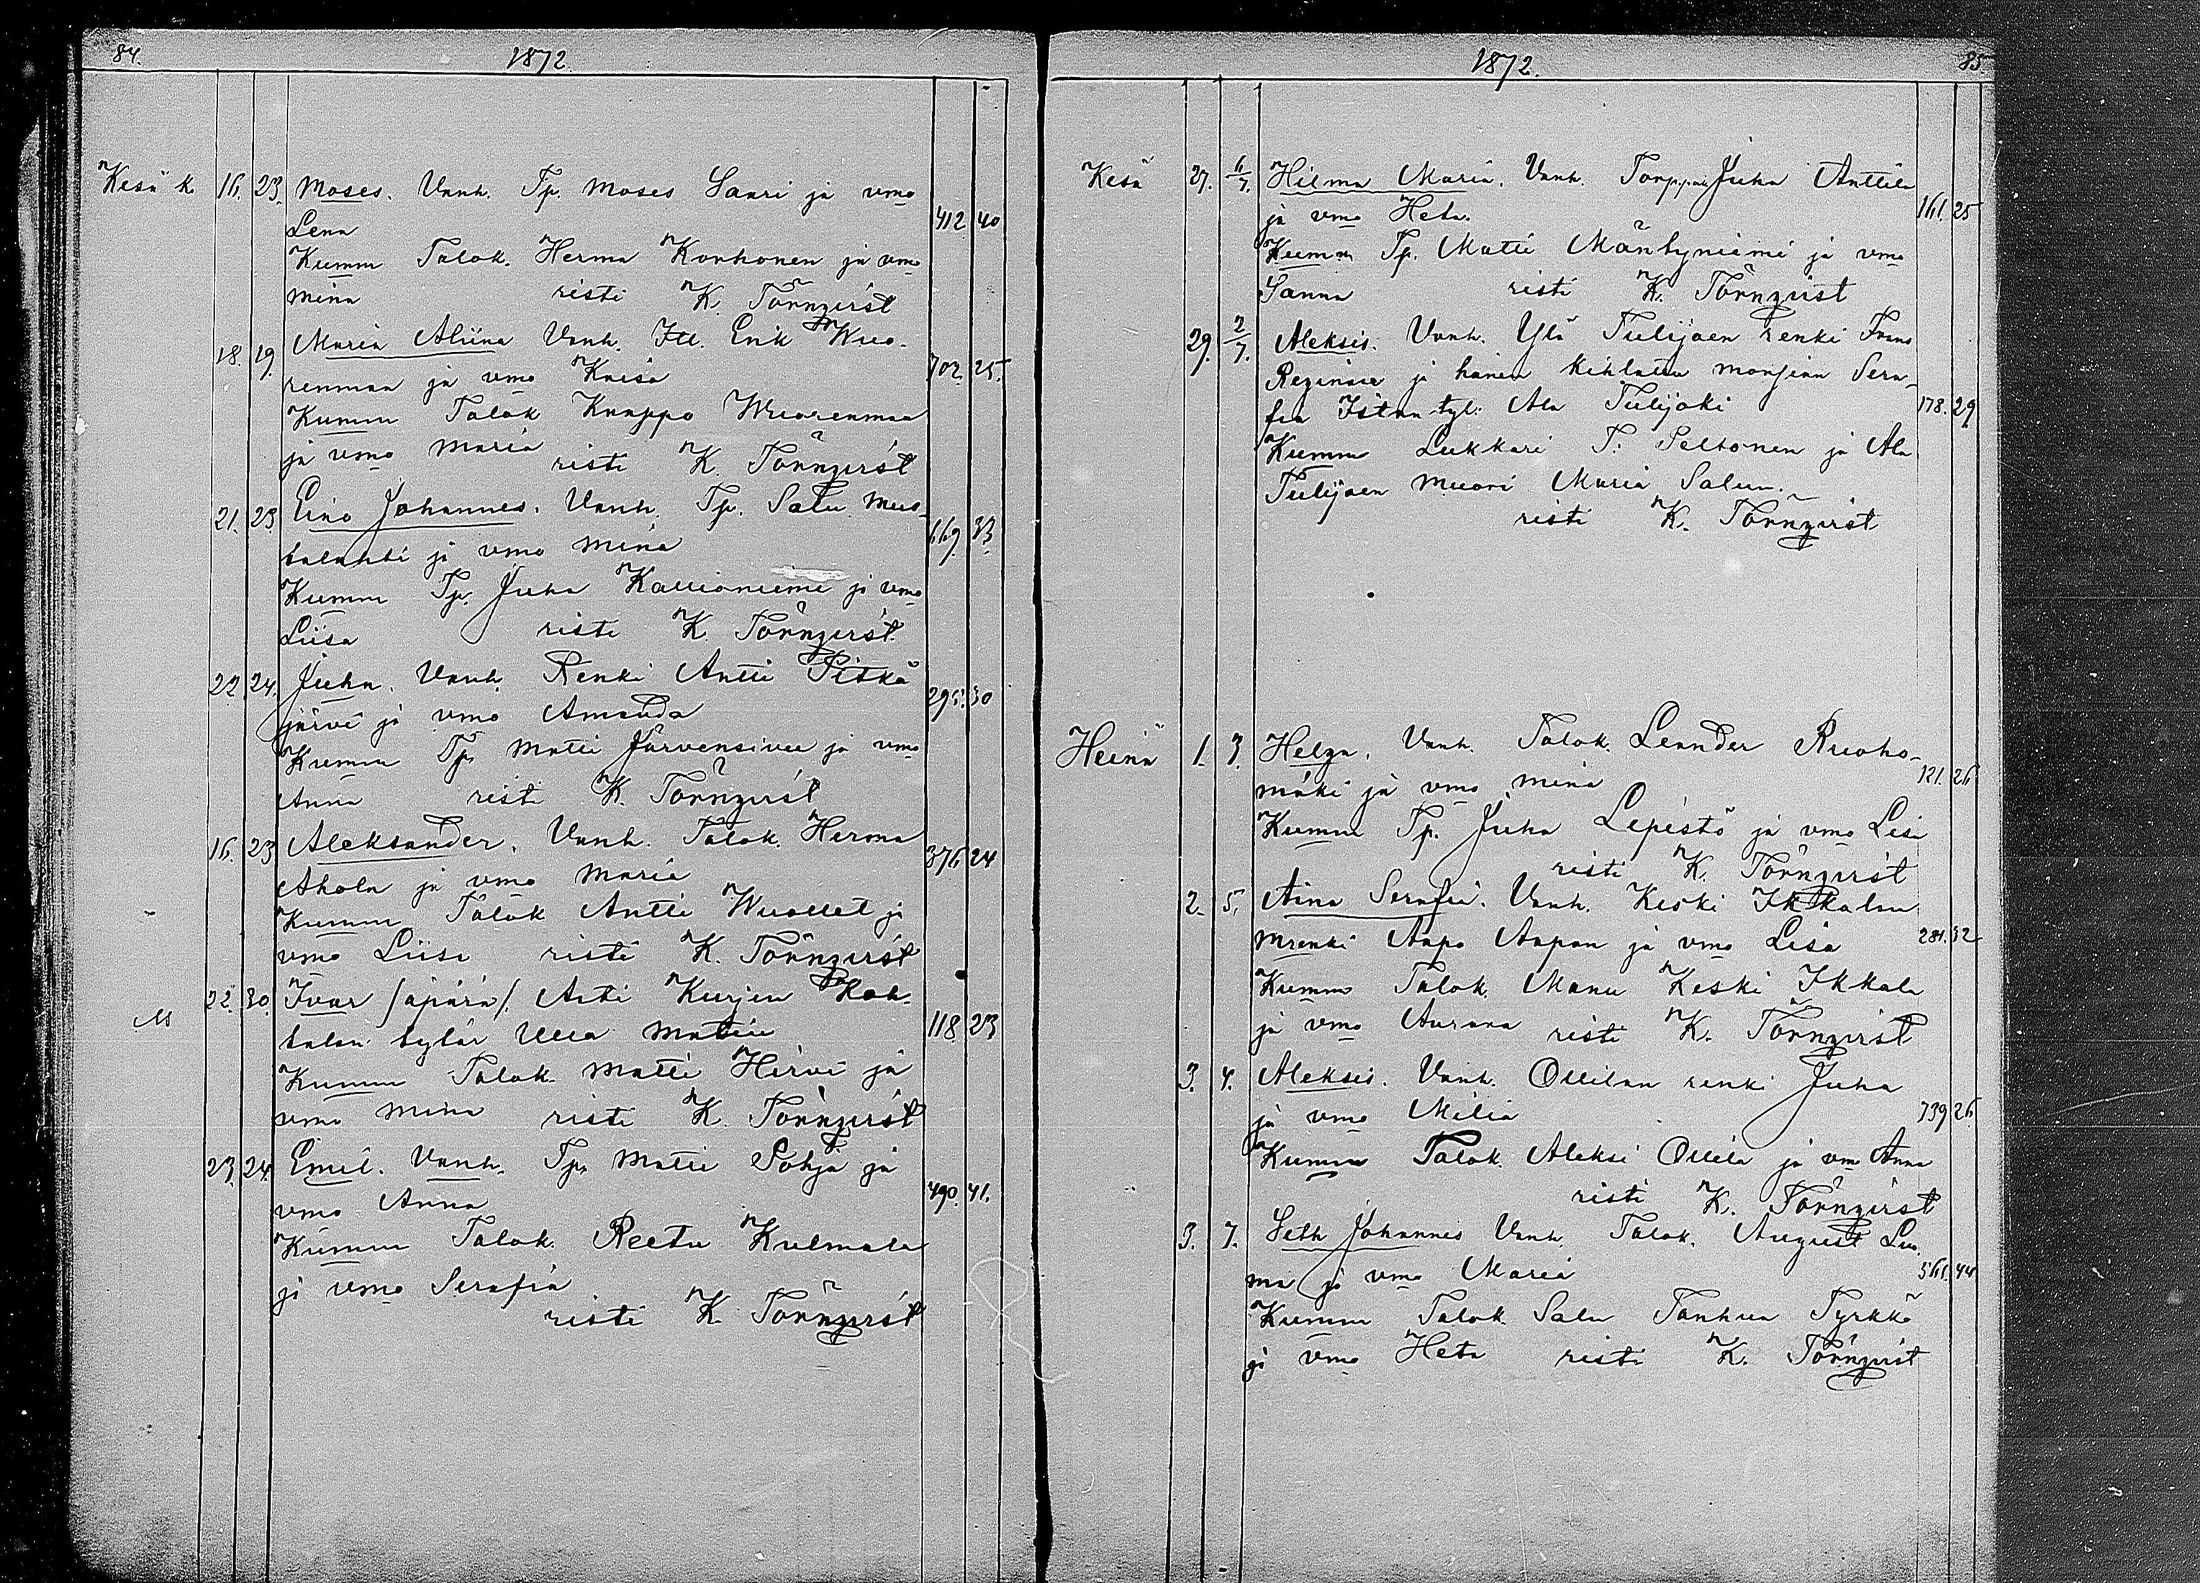 84.
1872.
Kesä k. 16. 23. Moses. Vanh. Tp. Moses Saari ja vmo
Lena 412 40
Kumm Talok. Herma Korhonen ja vmo
Mina risti K. Törnqvist
18. 19. Maria Aliina Vanh. Itl. Erik Wuo-
renmaa ja vmo Kaisa 702. 25.
Kumm Talok Kaappo Wuorenmaa
ja vmo Maria risti K. Törnqvist
21. 23 Eino Johannes. Vanh. Tp. Salu Mus-
talahti ja vmo Mina 669. 33.
Kumm Tp. Juha Kallioniemi ja vmo
Liisa risti K. Törnqvist
22 24. Juha. Vanh. Renki Antti Pitkä
järvi ja vmo Amanda 295. 30
Kumm Tp. Matti Järvensivu ja vmo
Anna risti K. Törnqvist
16. 23 Aleksander. Vanh. Talok. Herma
Ahola ja vmo Maria 376 24
Kumm Talok Antti Wuollet ja
vmo Liisi risti K. Törnqvist
M 22. 30. Ivar /äpärä/. Äiti Kurjen Koh-
talan tytär Ulla Matiin 118. 23
Kumm Talok. Matti Hirvi ja
vmo Mina risti K. Törnqvist
23. 24. Emil. Vanh. Tp. Matti Pohja ja
vmo Anna 490. 41.
Kumm Talok. Reetu Kulmala
ja vmo Serafia
risti K. Törnqvist
1872.
85
Kesä 27. 6/7. Hilma Maria. Vanh. Torppari Juha Anttila
ja vmo Heta. 161. 25
Kumm Tp. Matti Mäntyniemi ja vmo
Sanna risti K. Törnqvist
29. 2/7. Aleksis. Vanh. Ylä Tulijoen renki Frans
Reginan ja hänen kihlattu morsian Sera-
fia Iitun tyt. Ala Tulijoki 178. 29
Kumm Lukkari T. Peltonen ja Ala
Tulijoen muori Maria Salun.
risti K. Törnqvist
Heinä 1. 3. Helga. Vanh. Talok. Leander Ruoho-
mäki ja vmo Mina 121. 26
Kumm Tp. Juha Lepistö ja vmo Lisi
risti K. Törnqvist
2. 5. Aina Serafia. Vanh. Keski Ikkalan
mrenki Aapo Aapon ja vmo Lisa 281. 32
Kumm Talok. Manu Keski Ikkala
ja vmo Aurora risti K. Törnqvist
3. 4. Aleksis. Vanh. Ollilan renki Juha
ja vmo Milia 739 26.
Kumm Talok. Aleksi Ollila ja vmo Anna
risti K. Törnqvist
3. 7. Seth Johannes Vanh. Talok. August Luo
ma ja vmo Maria 561. 44
Kumm Talok. Salu Tanhua Tyrkkö
ja vmo Heta risti K. Törnqvist